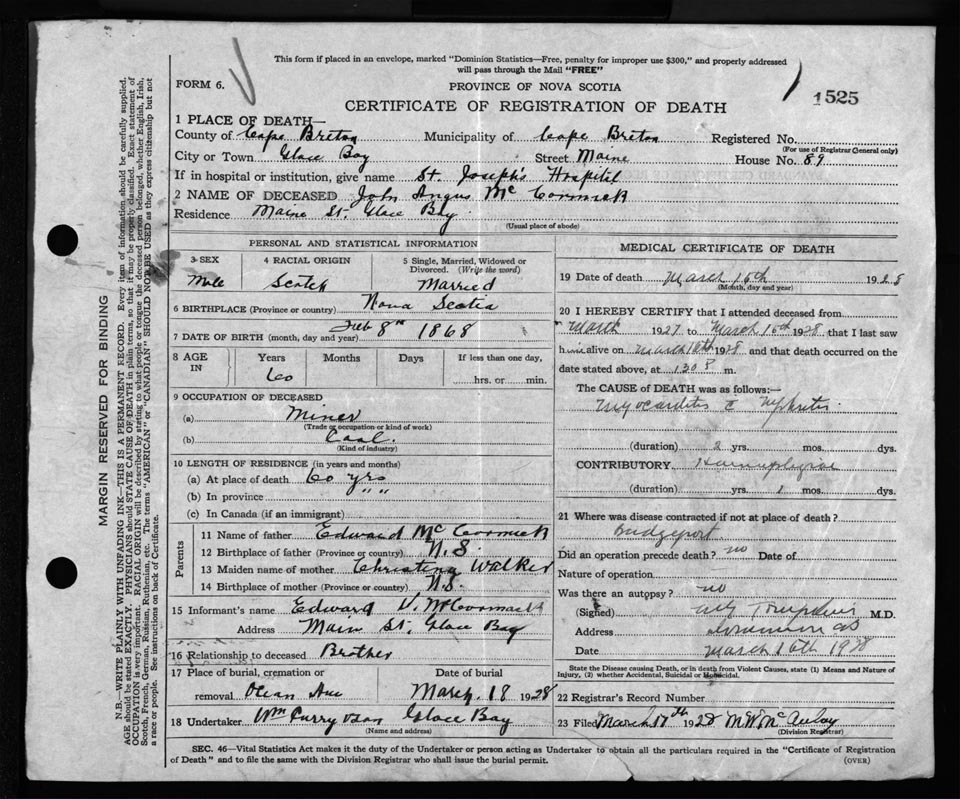 This form if placed in an envelope, marked "Dominion Statistics—Free, penalty for improper use $300," and properly addressed
will pass through the Mail "FREE"
FORM 6.
PROVINCE OF NOVA SCOTIA
1525
CERTIFICATE OF REGISTRATION OF DEATH
1 PLACE OF DEATH—
County of Cape Breton Municipality of Cape Breton Registered No.
(For use of Registrar General only)
City or Town Glace Bay Street Maine House No. 89
If in hospital or institution, give name St. Joseph's Hospitil
2 NAME OF DECEASED John Angus Mc Cormick
Residence Maine St. Glace Bay
(Usual place of abode)
MARGIN RESERVED FOR BINDING
N.B.—WRITE PLAINLY WITH UNFADING INK—THIS IS A PERMANENT RECORD. Every item of information should be carefully supplied.
AGE should be stated EXACTLY. PHYSICIANS should STATE CAUSE OF DEATH in plain terms, so that it may be properly classified. Exact statement of
OCCUPATION is very important. RACIAL ORIGIN will be described by stating to what people or tongue the deceased person belonged, whether English, Irish,
Scotch, French, German, Russian, Ruthenian, etc. The terms "AMERICAN" or "CANADIAN" SHOULD NOT BE USED as they express citizenship but not
a race or people. See instructions on back of Certificate.
PERSONAL AND STATISTICAL INFORMATION
3 SEX
4 RACIAL ORIGIN
5 Single, Married, Widowed or
Divorced. (Write the word)
Male Scotch Married
6 BIRTHPLACE (Province or country) Nova Scotia
7 DATE OF BIRTH (month, day and year) Feb 8th 1868
8 AGE
IN
Years Months Days If less than one day,
60 hrs. or min.
9 OCCUPATION OF DECEASED
(a) Miner
(Trade or occupation or kind of work)
(b) Coal.
(Kind of industry)
10 LENGTH OF RESIDENCE (in years and months)
(a) At place of death 60 yrs
(b) In province " "
(c) In Canada (if an immigrant)
Parents
11 Name of father Edward Mc Cormick
12 Birthplace of father (Province or country) N.S.
13 Maiden name of mother Christena Walker
14 Birthplace of mother (Province or country) N.S.
15 Informant's name Edward V. McCormack
Address Main St, Glace Bay
16 Relationship to deceased Brother
17 Place of burial, cremation or
removal Ocean Ave
Date of burial
March 18 1928
18 Undertaker Wm Curry & Son Glace Bay
(Name and address)
MEDICAL CERTIFICATE OF DEATH
19 Date of death March 16th 1928
(Month, day and year)
20 I HEREBY CERTIFY that I attended deceased from
March 1927 to March 16th 1928 that I last saw
him alive on March 16th 1928 and that death occurred on the
date stated above, at 130 P m.
The CAUSE OF DEATH was as follows:—
Myocarditis c Nephritis
(duration) 2 yrs. mos. dys.
CONTRIBUTORY
(duration) yrs. 1 mos. dys.
21 Where was disease contracted if not at place of death?
Bridgeport
Did an operation precede death? no Date of
Nature of operation
Was there an autopsy? no
(Signed) Tompkins M.D.
Address Dominion
Date March 16th 1928
State the Disease causing Death, or in death from Violent Causes, state (1) Means and Nature of
Injury, (2) whether Accidental, Suicidal or Homicidal.
22 Registrar's Record Number
23 Filed March 17th 1928 M.W. McAulay
(Division Registrar)
SEC. 46—Vital Statistics Act makes it the duty of the Undertaker or person acting as Undertaker to obtain all the particulars required in the "Certificate of Registration
of Death" and to file the same with the Division Registrar who shall issue the burial permit.
(OVER)